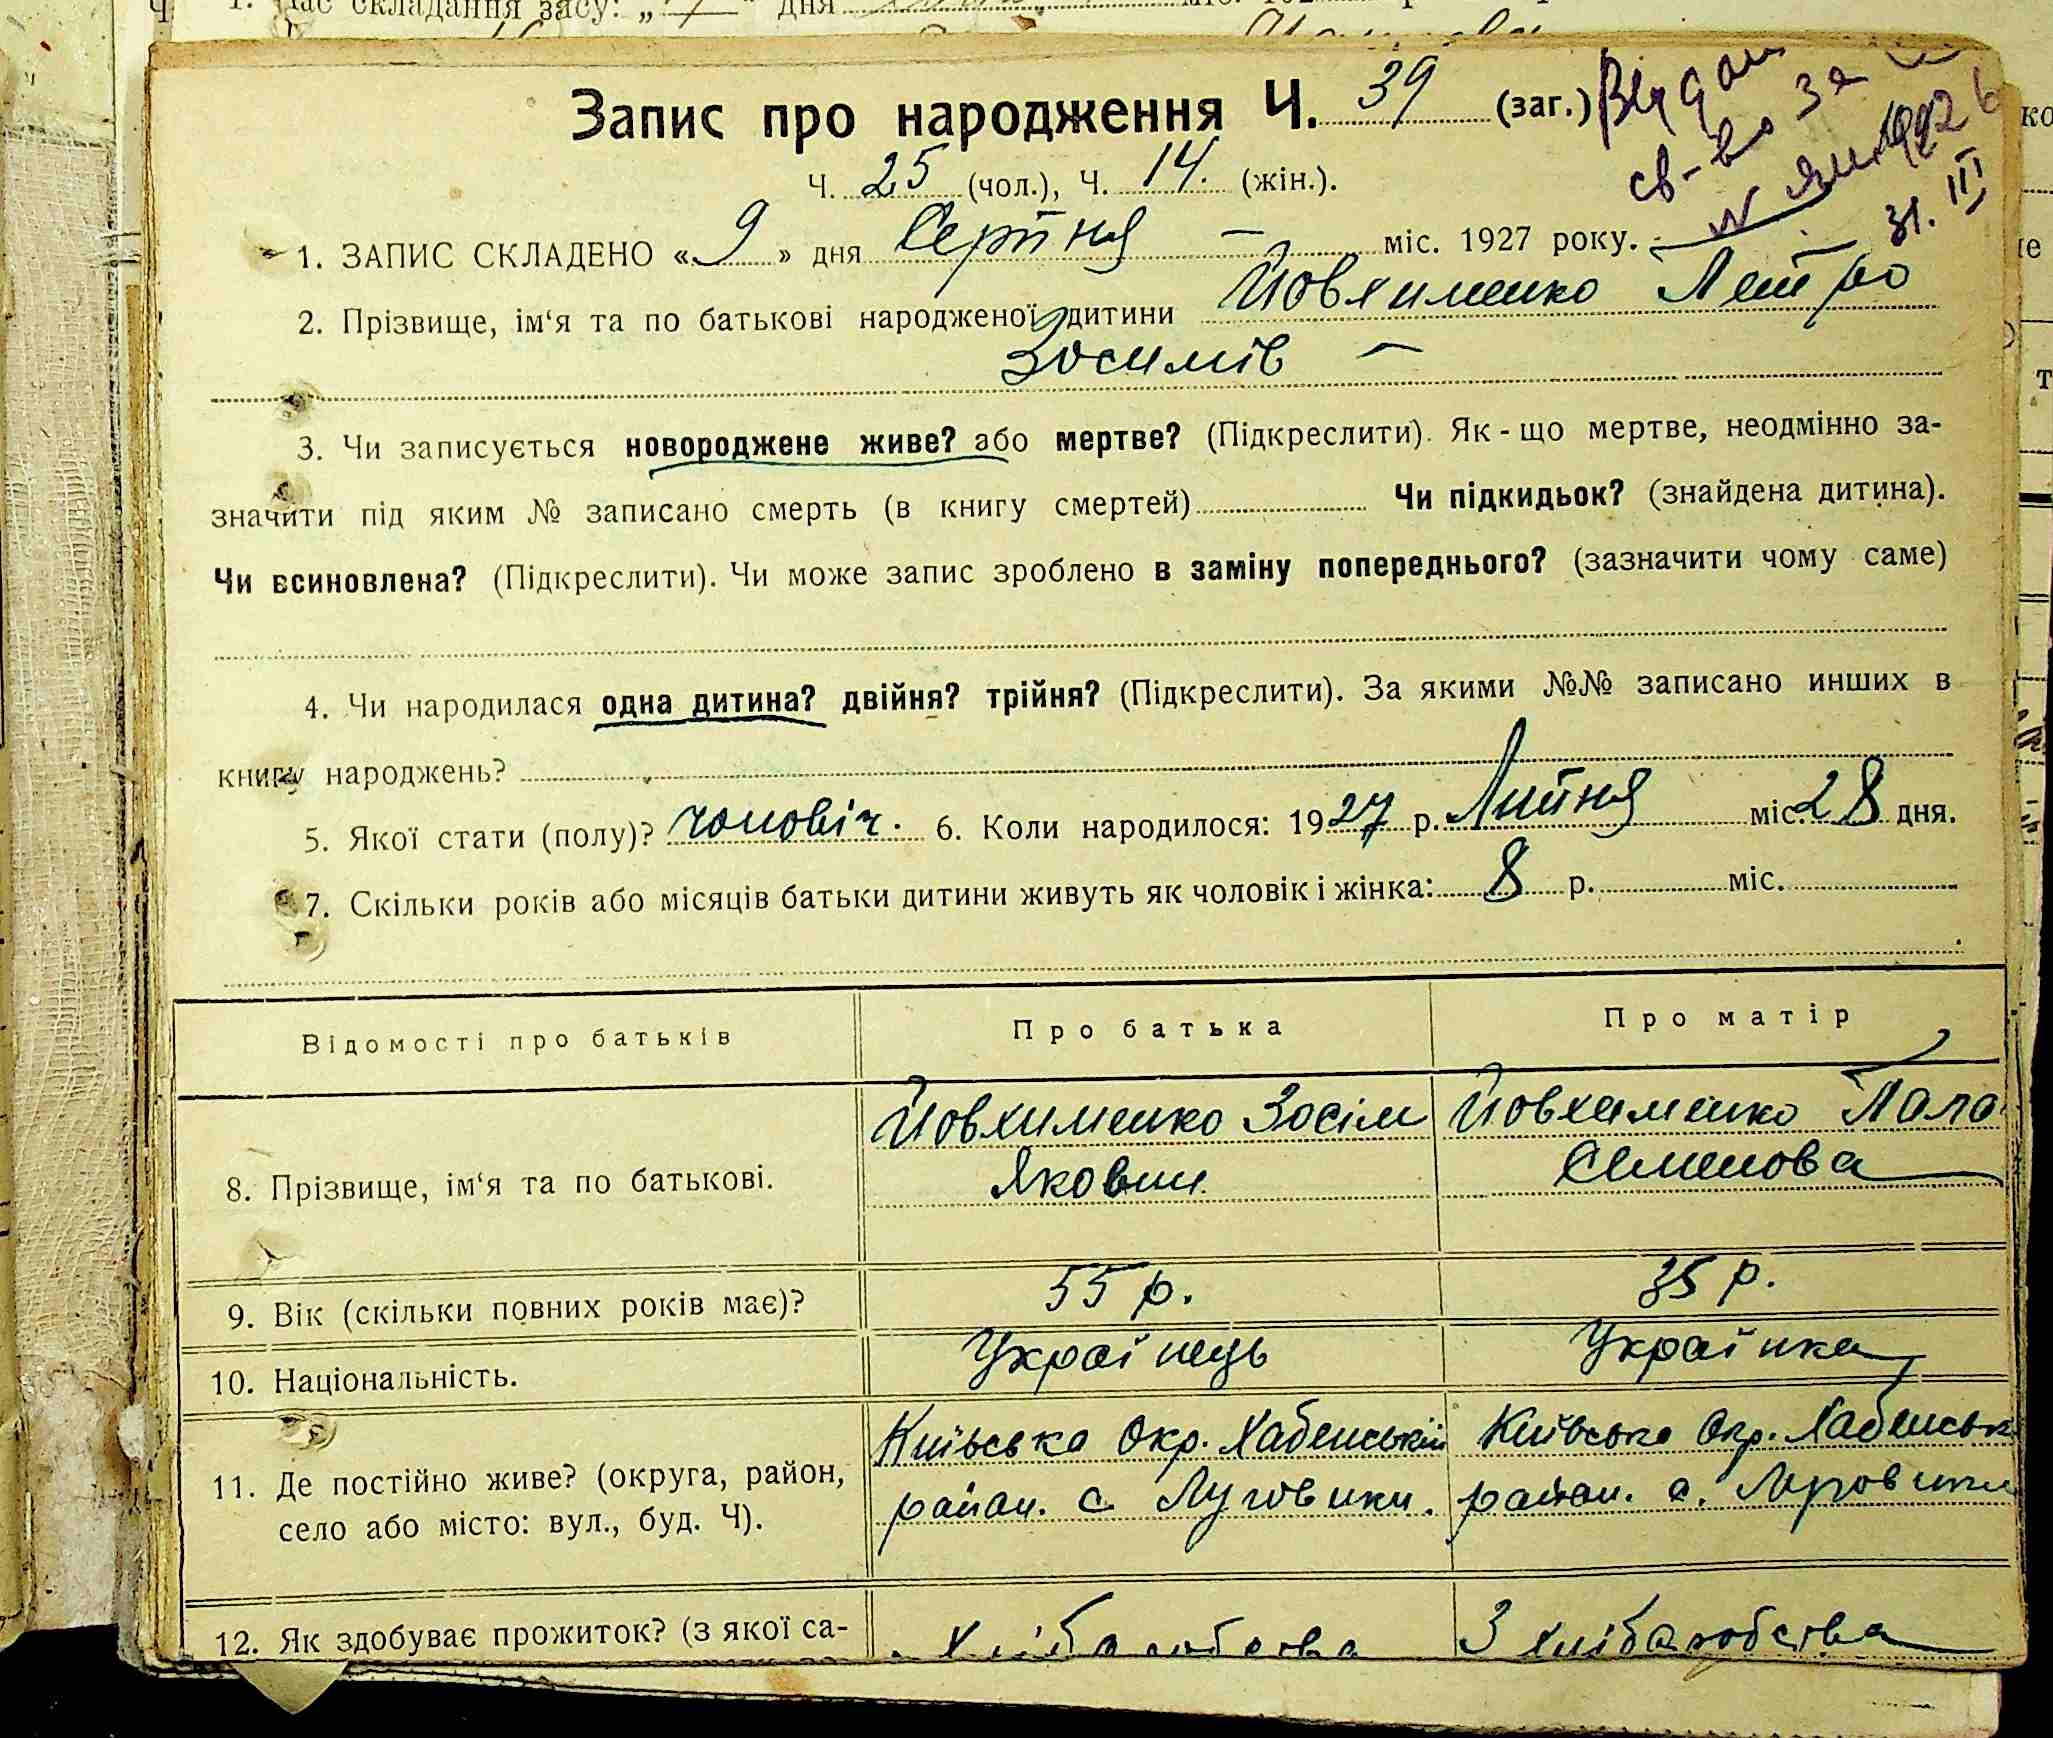 Запис про народження Ч. 39 (заг.)
Ч. 25 (чол.), Ч. 14. (жін.).
св-во за
31. III
1. ЗАПИС СКЛАДЕНО « 9 » дня Серпня — міс. 1927 року.
2. Прізвище, ім‘я та по батькові народженої дитини Йовхименко Петро
Зосимів —
3. Чи записується новороджене живе? або мертве? (Підкреслити). Як - що мертве, неодмінно за-
значити під яким № записано смерть (в книгу смертей) Чи підкидьок? (знайдена дитина).
Чи всиновлена? (Підкреслити). Чи може запис зроблено в заміну попереднього? (зазначити чому саме)
4. Чи народилася одна дитина? двійня? трійня? (Підкреслити). За якими №№ записано инших в
книгу народжень?
5. Якої стати (полу)? чоловіч. 6. Коли народилося: 1927 р. Липня міс. 28 дня.
7. Скільки років або місяців батьки дитини живуть як чоловік і жінка: 8 р. міс.
Відомості про батьків Про батька Про матір
8. Прізвище, ім‘я та по батькові. Йовхименко Зосім Йовхименко
Якович Семенова
9. Вік (скільки повних років має)? 55 р. 35 р.
10. Національність. Українець Українка
11. Де постійно живе? (округа, район, село або місто: вул., буд. Ч). Київська Окр. Хабенський Київська Окр. Хабенськ
район. с Луговики. район. с. Луговики
12. Як здобуває прожиток? (з якої са- Хліборобства З хліборобства